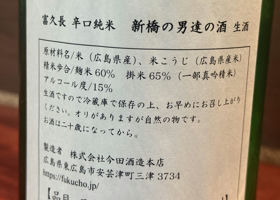 富久長 辛口純米 新橋の男達の酒 生酒
原材料名/米(広島県産)、米こうじ(広島県産米)
精米歩合/麹米60% 掛米65%(一部真吟精米)
アルコール度/15%
生酒ですので冷蔵庫で保存の上、お早めにお召し上がり
ください。オリがありますが自然の物です。
お酒は二十歳になってから。
製造者 株式会社今田酒造本店
広島県東広島市安芸津町三津3734
https://fukucho.jp/